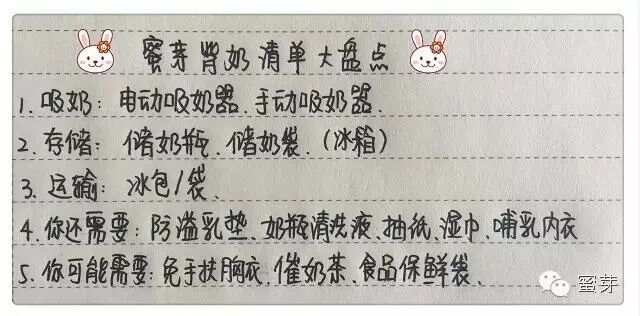 蜜芽背奶清单大盘点
1.吸奶：电动吸奶器、手动吸奶器.
2.存储：储奶瓶、储奶袋、(冰箱)
3.运输：冰包/袋、
4.你还需要：防溢乳垫、奶瓶清洗液、抽纸、湿巾、哺乳内衣
5.你可能需要：免手扶胸衣、催奶茶、食品保鲜袋、
蜜芽